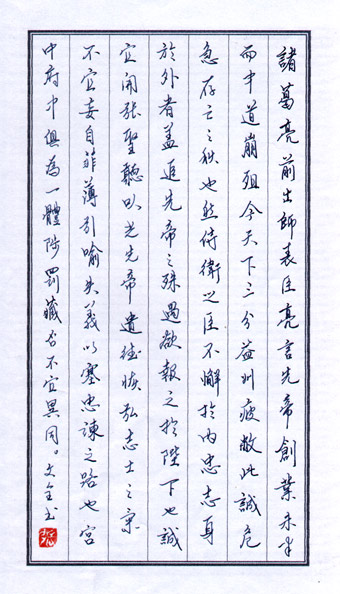 諸葛亮前出師表臣亮言先帝創業未半
而中道崩殂今天下三分益州疲敝此誠危
急存亡之秋也然侍衛之臣不懈於內忠志身
於外者蓋追先帝之殊遇欲報之於陛下也誠
宜開張聖聽以光先帝遺德恢弘志士之氣
不宜妄自菲薄引喻失義以塞忠諫之路也宮
中府中俱為一體陟罰臧否不宜異同。文全书